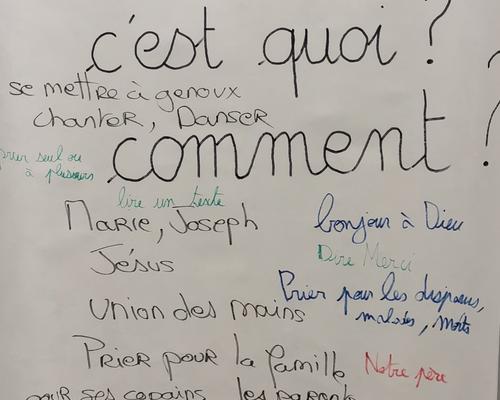 c'est quoi ?
se mettre à genoux
chanter, Danser
comment ?
prier seul ou
à plusieurs
lire un texte
Marie, Joseph
bonjour à Dieu
Jésus
Dire Merci
Prier pour les disparus,
malades, morts
Union des mains
Prier pour la famille
Notre père
pour ses copains les parents